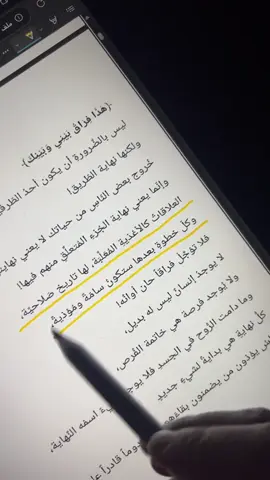 ﴿هَذَا فِرَاقُ بَيْنِي وَبَيْنِكَ﴾.
ليس بالضّرورة أن يكون أحدُ الطّرفين
ولكنها نهاية الطّريق!
خروج بعض الناس من حياتك لا يعني نهايتها
وإنّما يعني نهاية الجُزء المُتعلّق منهم فيها!
العلاقات كالأغذية المعلّبة، لها تاريخ صلاحيّة،
وكل خطوةٍ بعدها ستكونُ سامّة ومُؤذية
فلا تؤجّل فراقاً حان أوانُه!
لا يوجدُ إنسانٌ ليس له بديل،
ولا يُوجد فرصة هي خاتمة الفرص،
وما دامت الرُّوح في الجسد فلا يوجد اسمُه النّهاية،
كلّ نهايةٍ هي بدايةٌ لشيءٍ جديدٍ
يؤذون من يضمنون بقاءهم
دوماً قادراً
ملف